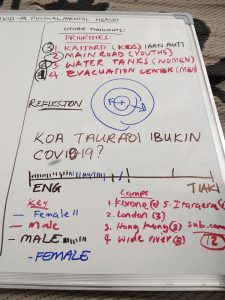 COVID-19 PHYSICAL MENTAL HEALTH
OTHER THOUGHTS
PRIORITIES
1. KAITORO (KIDS)
2 MAIN ROAD (YOUTHS)
3. WATER TANKS (WOMEN)
4. EVACUATION CENTER (MEN)
REFLECTION
KOA TAURAOI IBUKIN
COVID19?
ENG
TIAKI
Key
- Female 11
- Male
- MALE
- FEMALE
Camps
1. Korone
5. Itaragena
2. London (3)
3. Hong Kong (3)
4 Wide river (3)
12